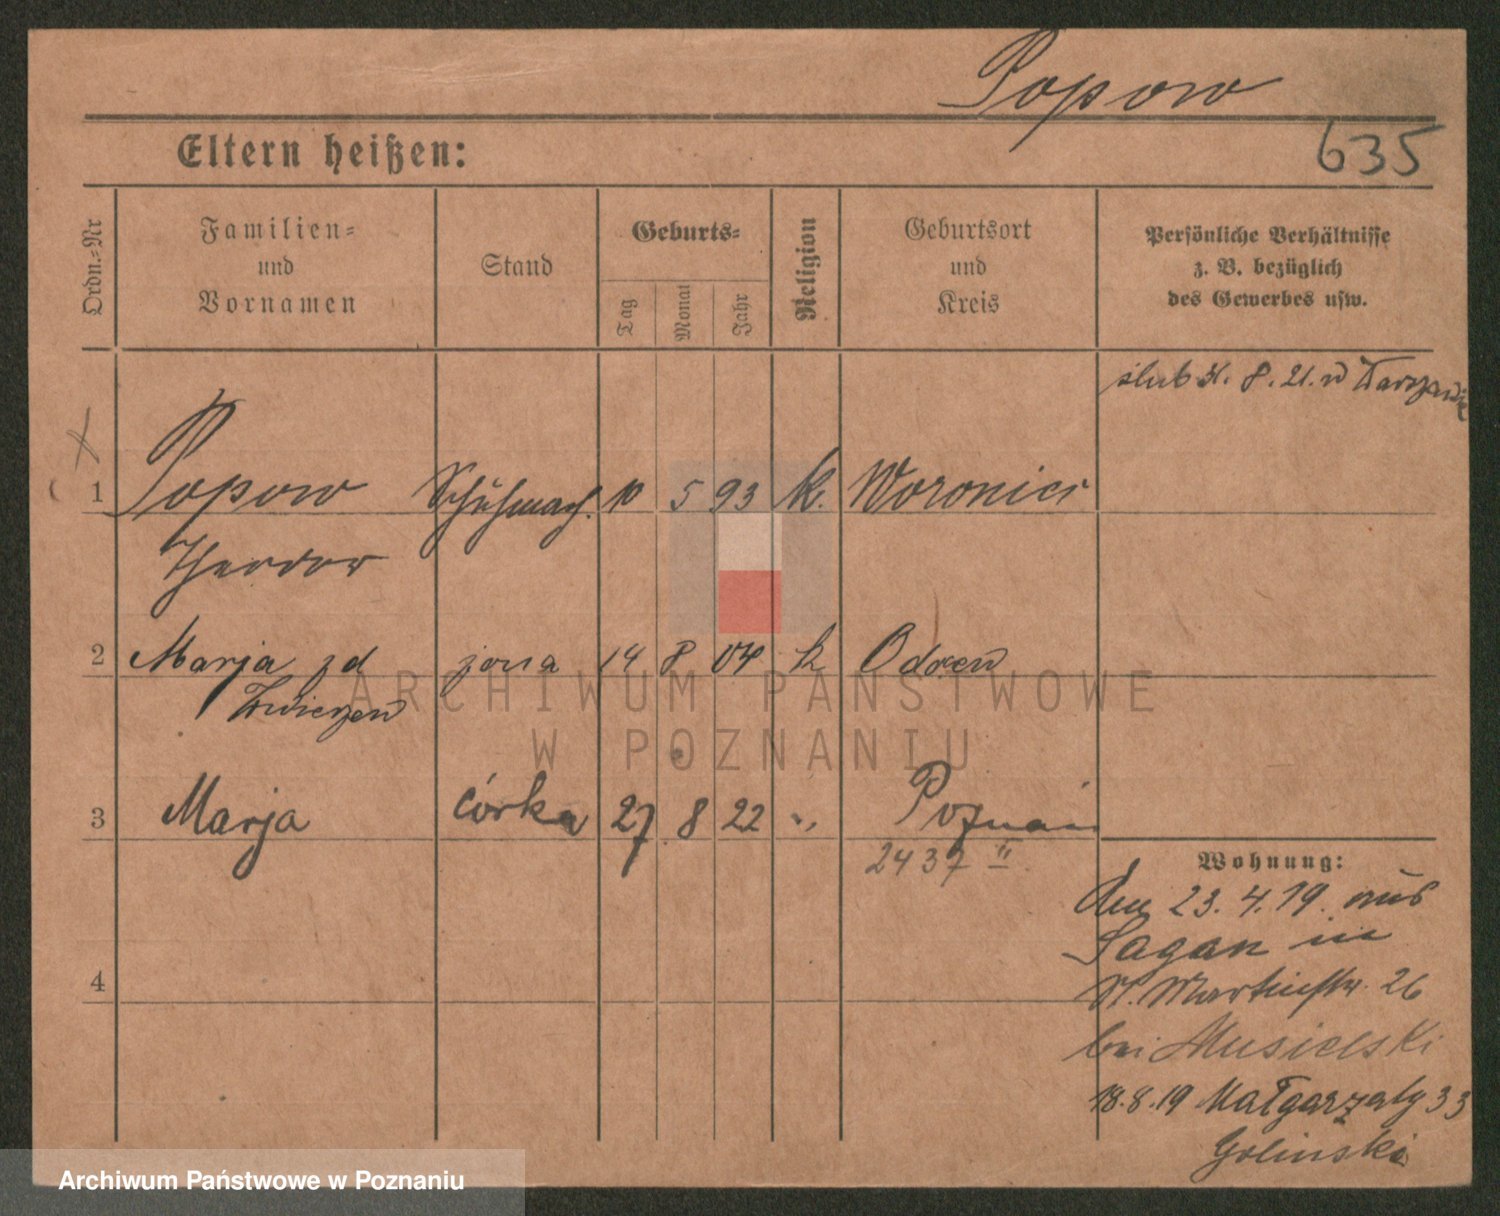 Popow
635
Eltern heißen:
Ordn.-Nr
Familien-
und
Vornamen
Stand
Geburts-
Tag
Monat
Jahr
Religion
Geburtsort
und
Kreis
Persönliche Verhältnisse
z. B. bezüglich
des Gewerbes usw.
ślub 31. 8. 21. w Warszawie
1 Popow Schuhmach. 10 5 93 k. Woronici
Theodor
2 Marja zd żona 14 8 04 k
3 Marja córka 27 8 22 " Poznań
2437 II
Wohnung:
den 23. 4. 19. aus
Sagan in
St. Martinstr. 26
bei Musielski
18.8.19 Małgorzaty 33
Golinski
4
ARCHIWUM PAŃSTWOWE
W POZNANIU
Archiwum Państwowe w Poznaniu